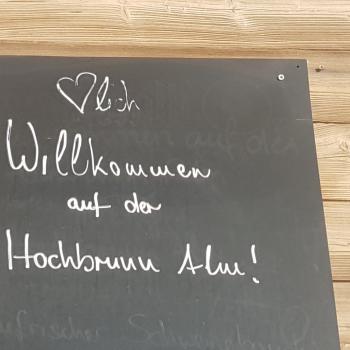 ♡lich
Willkommen
auf der
Hochbrunn Alm!